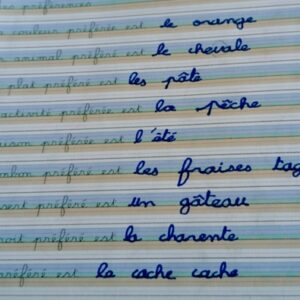 préférences
couleur préférée est le orange
animal préféré est le chevale
plat préféré est les pâte
activité préférée est la pêche
préférée est l'été
préféré est les fraises tag
préféré est un gâteau
préféré est la charente
préféré est la cache cache